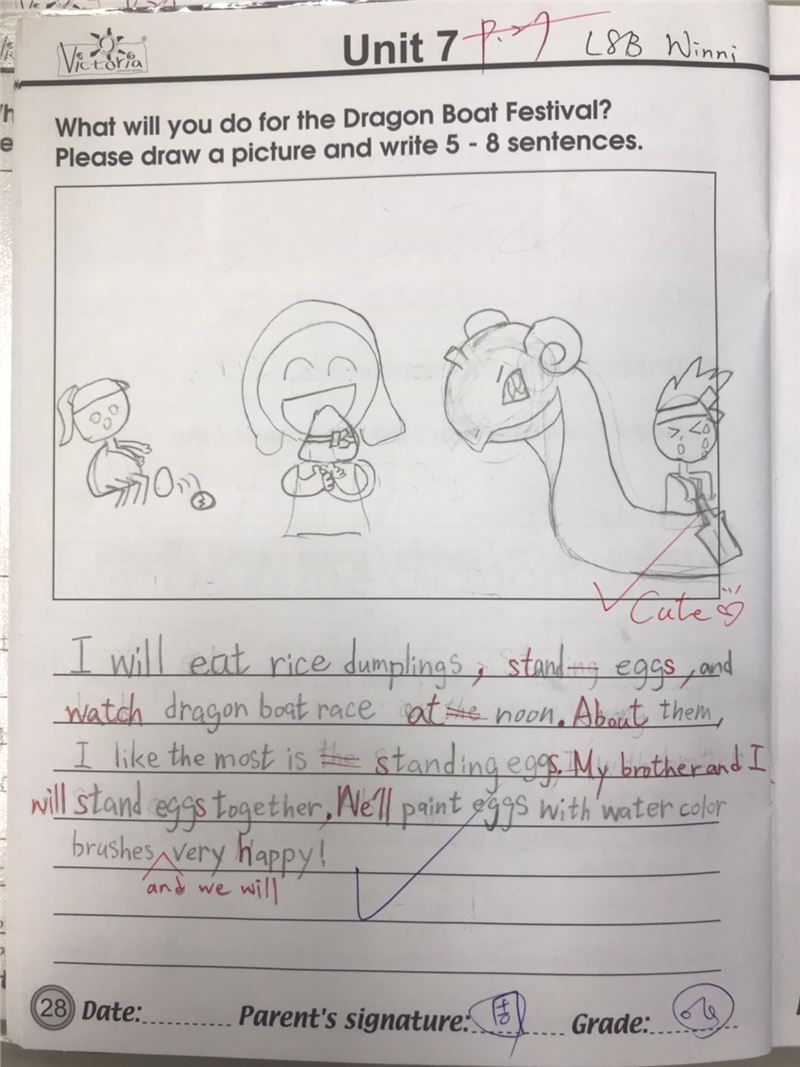 Victoria
Unit 7 P.27 L8B Winni
What will you do for the Dragon Boat Festival?
Please draw a picture and write 5 - 8 sentences.
Cute
I will eat rice dumplings, standing eggs, and
watch dragon boat race at the noon. About them,
I like the most is the standing eggs. My brother and I
will stand eggs together. We'll paint eggs with water color
brushes very happy!
and we will
28 Date: Parent's signature: Grade: